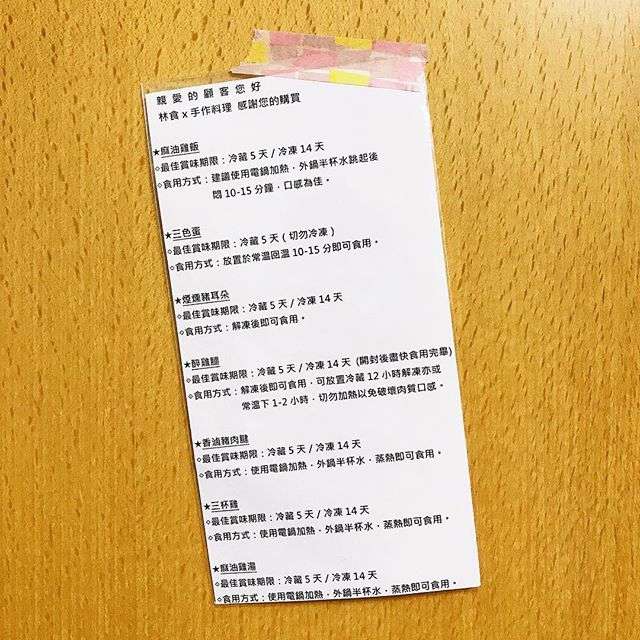 親愛的顧客您好
林食 x 手作料理 感謝您的購買
★麻油雞飯
○最佳賞味期限：冷藏 5 天 / 冷凍 14 天
○食用方式：建議使用電鍋加熱，外鍋半杯水跳起後
悶 10-15 分鐘，口感為佳。
★三色蛋
○最佳賞味期限：冷藏 5 天 ( 切勿冷凍 )
○食用方式：放置於常溫回溫 10-15 分即可食用。
★煙燻豬耳朵
○最佳賞味期限：冷藏 5 天 / 冷凍 14 天
○食用方式：解凍後即可食用。
★醉雞腿
○最佳賞味期限：冷藏 5 天 / 冷凍 14 天 (開封後盡快食用完畢)
○食用方式：解凍後即可食用，可放置冷藏 12 小時解凍亦或
常溫下 1-2 小時，切勿加熱以免破壞肉質口感。
★香滷豬肉腱
○最佳賞味期限：冷藏 5 天 / 冷凍 14 天
○食用方式：使用電鍋加熱，外鍋半杯水，蒸熱即可食用。
★三杯雞
○最佳賞味期限：冷藏 5 天 / 冷凍 14 天
○食用方式：使用電鍋加熱，外鍋半杯水，蒸熱即可食用。
★麻油雞湯
○最佳賞味期限：冷藏 5 天 / 冷凍 14 天
○食用方式：使用電鍋加熱，外鍋半杯水，蒸熱即可食用。